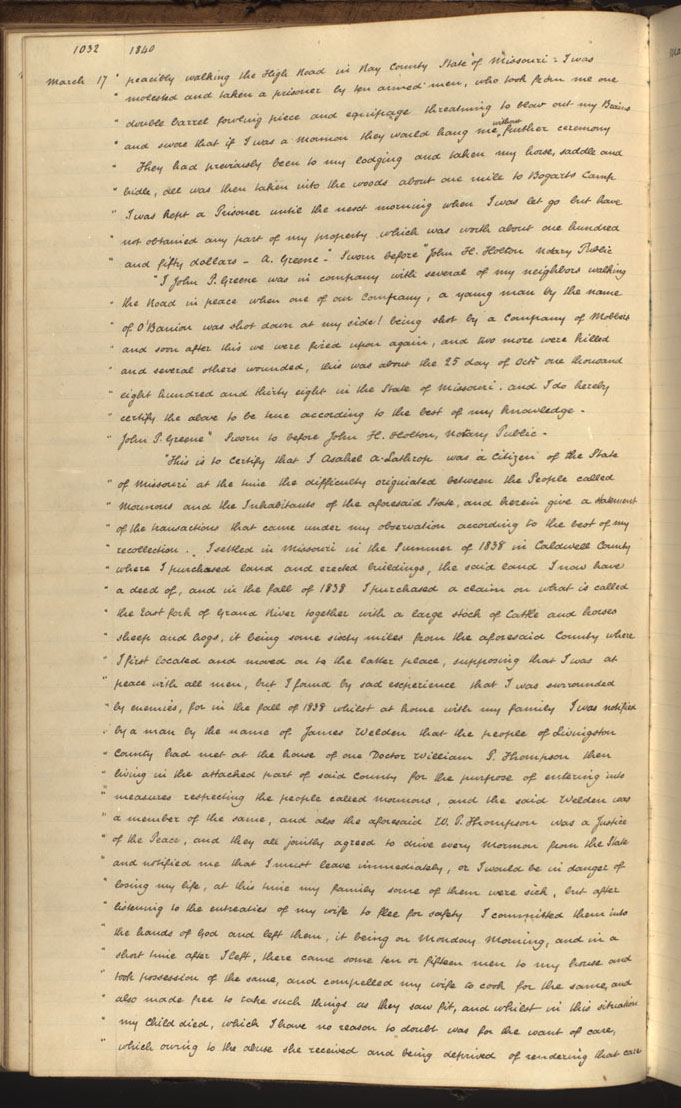 1032 1840
March 17 " peacibly walking the High Road in Ray County State of Missouri: I was
" molested and taken a prisoner by ten armed men, who took from me one
" double barrel fowling piece and equipage threatning to blow out my Brains
" and swore that if I was a Mormon they would hang me without further ceremony
" They had previously been to my lodging and taken my horse, saddle and
" bridle, all was then taken into the woods about one mile to Bogarts Camp
" I was kept a Prisoner until the next morning when I was let go but have
" not obtained any part of my property which was worth about one hundred
" and fifty dollars – A. Greene" Sworn before "John H. Holton Notary Public
"I John P. Greene was in company with several of my neighbors walking
" the Road in peace when one of our Company, a young man by the name
" of O'Banion was shot down at my side! being shot by a Company of Mobbers
" and soon after this we were fired upon again, and two more were killed
" and several others wounded, this was about the 25 day of Octr one thousand
" eight hundred and thirty eight in the State of Missouri. and I do hereby
" certify the above to be true according to the best of my knowledge –
" John P. Greene" Sworn to before John H. Holton, Notary Public –
"This is to certify that I Asahel A. Lathrop was a Citizen of the State
" of Missouri at the time the difficulty originiated between the People called
" Mormons and the Inhabitants of the aforesaid State, and herein give a statement
" of the transactions that came under my observation according to the best of my
" recollection. I settled in Missouri in the Summer of 1838 in Caldwell County
" where I purchased land and erected buildings, the said land I now have
" a deed of, and in the fall of 1838 I purchased a claim on what is called
" the East fork of Grand River together with a large stock of Cattle and horses
" sheep and hogs, it being some sixty miles from the aforesaid County where
" I first located and moved on to the latter place, supposing that I was at
" peace with all men, but I found by sad experience that I was surrounded
" by enemies, for in the fall of 1838 whilst at home with my family I was notified
" by a man by the name of James Welden that the people of Livingston
" County had met at the house of one Doctor William P. Thompson then
" living in the attached part of said County for the purpose of entering into
" measures respecting the people called mormons, and the said Welden was
" a member of the same, and also the aforesaid W. P. Thompson was a Justice
" of the Peace, and they all jointly agreed to drive every Mormon from the State
" and notified me that I must leave immediately, or I would be in danger of
" losing my life, at this time my family some of them were sick, but after
" listening to the entreaties of my wife to flee for safety I committed them into
" the hands of God and left them, it being on Monday Morning, and in a
" short time after I left, there came some ten or fifteen men to my house and
" took possession of the same, and compelled my wife to cook for the same, and
" also made free to take such things as they saw fit, and whilst in this situation
" my Child died, which I have no reason to doubt was for the want of care,
" which owing to the abuse she received and being deprived of rendering that care